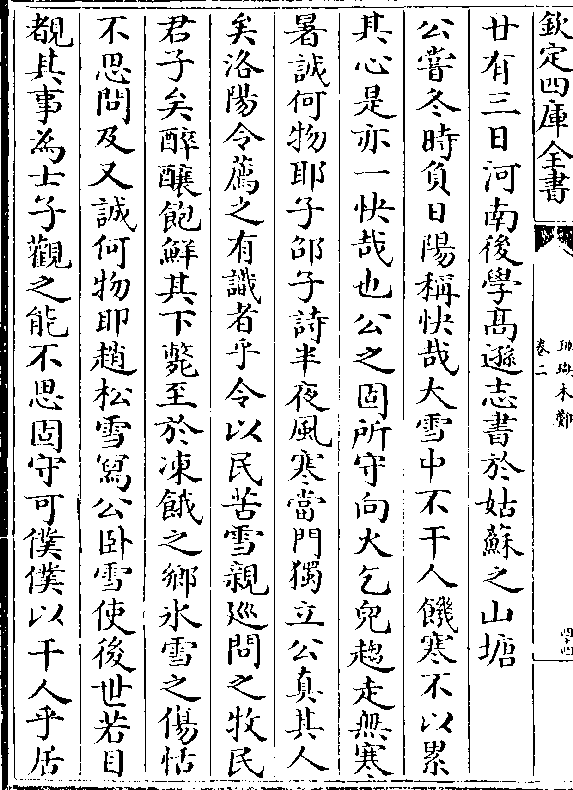 欽定四庫全書
珊瑚木難
卷二
四十四
廿有三日河南後學髙遜志書於姑蘇之山塘
公嘗冬時負日陽稱快哉大雪中不干人饑寒不以累
其心是亦一快哉也公之固所守向火乞兒趨走無寒
暑誠何物耶子邵子詩半夜風寒當門獨立公真其人
矣洛陽令薦之有識者乎令以民苦雪親廵問之牧民
君子矣醉醲飽鮮其下斃至於凍餓之鄉氷雪之傷恬
不思問及又誠何物耶趙松雪寫公卧雪使後世若目
覩其事為士子觀之能不思固守可僕僕以干人乎居